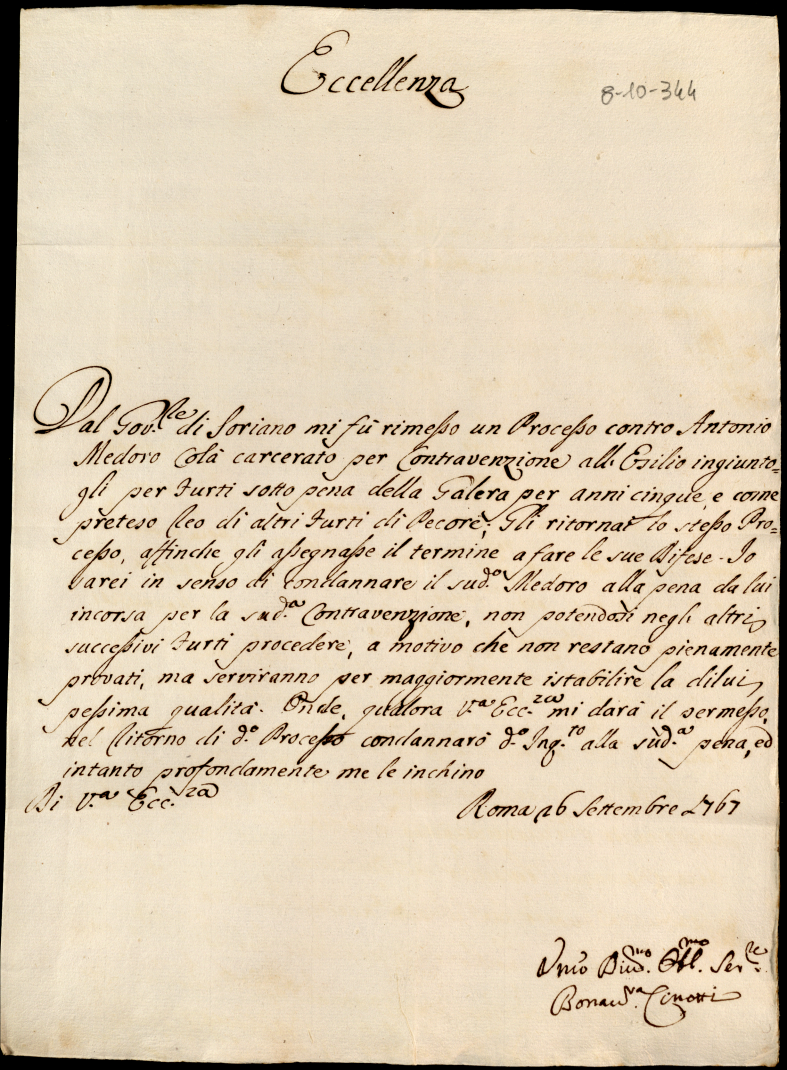 Eccellenza
8-10-344
Dal Gov.re di Soriano mi fù rimesso un Processo contro Antonio
Medoro Cola carcerato per Contravenzione all' Esilio ingiunto=
gli per Furti sotto pena della Galera per anni cinque, e come
preteso Reo di altri Furti di Pecore; Gli ritornai lo stesso Pro=
cesso, affinche gli assegnasse il termine a fare le sue Difese. Io
sarei in senso di condannare il sud.o Medoro alla pena da lui
incorsa per la sud.a Contravenzione, non potendosi negli altri
successivi Furti procedere, a motivo che non restano pienamente
provati, ma serviranno per maggiormente istabilire la dilui
pessima qualità. Onde, qualora V.a Ecc.za mi darà il permesso,
nel Ritorno di d.o Processo condannarò d.o Inq.to alla sud.a pena, ed
intanto profondamente me le inchino
Di V.a Ecc.za
Roma 16 Settembre 1767
Vmo Div.mo Obl.mo Ser.re
Bonav.ra Cinotti